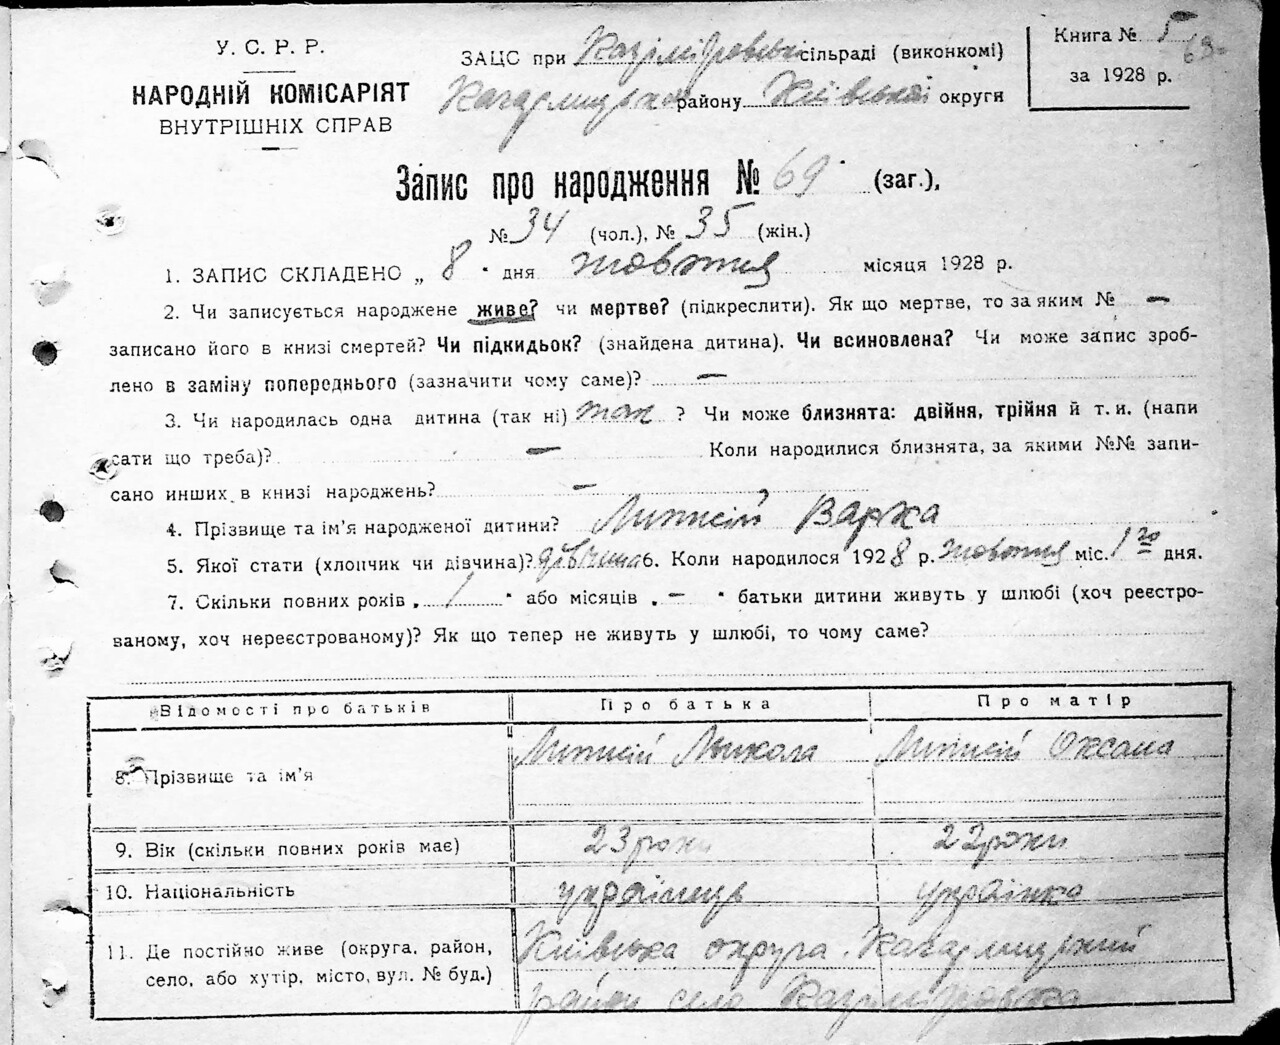 У. С. Р. Р.
НАРОДНІЙ КОМІСАРІЯТ
ВНУТРІШНІХ СПРАВ
ЗАЦС при Казіміровські сільраді (виконкомі)
Кагарлицького району Київської округи
Книга № 5
69
за 1928 р.
Запис про народження № 69 (заг.),
№ 34 (чол.), № 35 (жін.)
1. ЗАПИС СКЛАДЕНО „ 8 " дня жовтня місяця 1928 р.
2. Чи записується народжене живе? чи мертве? (підкреслити). Як що мертве, то за яким № —
записано його в книзі смертей? Чи підкидьок? (знайдена дитина). Чи всиновлена? Чи може запис зроб-
лено в заміну попереднього (зазначити чому саме)? —
3. Чи народилась одна дитина (так ні) так ? Чи може близнята: двійня, трійня й т. и. (напи
сати що треба)? — Коли народилися близнята, за якими №№ запи-
сано инших в книзі народжень? —
4. Прізвище та ім'я народженої дитини? Варка
5. Якої стати (хлопчик чи дівчина)? дівчина 6. Коли народилося 1928 р. жовтня міс. 1го дня.
7. Скільки повних років „ 1 " або місяців „ — " батьки дитини живуть у шлюбі (хоч реєстро-
ваному, хоч нереєстрованому)? Як що тепер не живуть у шлюбі, то чому саме?
Відомості про батьків Про батька Про матір
8. Прізвище та ім'я Микола Оксана
9. Вік (скільки повних років має) 23 роки 22 роки
10. Національність українець українка
11. Де постійно живе (округа, район, Київська округа. Кагарлицкий
село, або хутір, місто, вул. № буд.) район село Казімировка